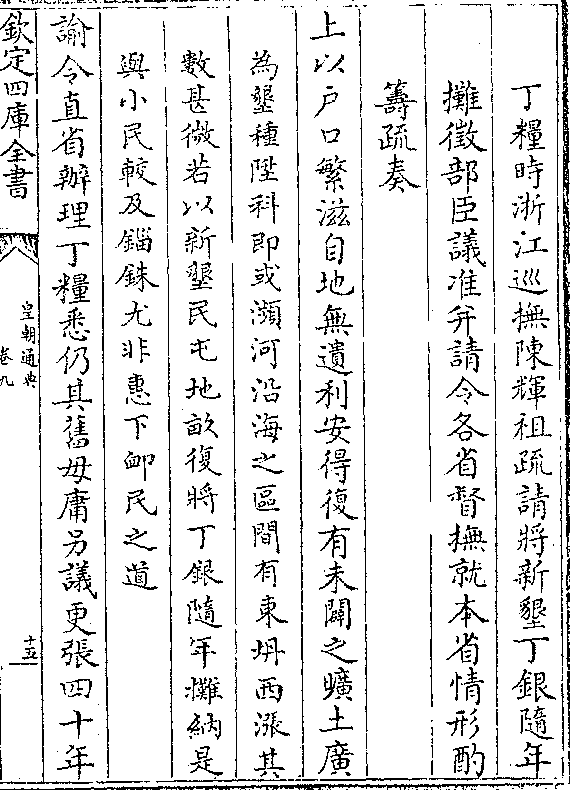 丁糧時浙江巡撫陳輝祖疏請將新墾丁銀隨年
攤徵部臣議准并請令各省督撫就本省情形酌
籌疏奏
上以户口繁滋自地無遺利安得復有未闢之曠土廣
為墾種陞科即或瀕河沿海之區間有東坍西漲其
數甚微若以新墾民屯地畝復將丁銀隨年攤納是
與小民較及錙銖尤非惠下卹民之道
諭令直省辦理丁糧悉仍其舊毋庸另議更張四十年
欽定四庫全書
皇朝通典
卷九
十五